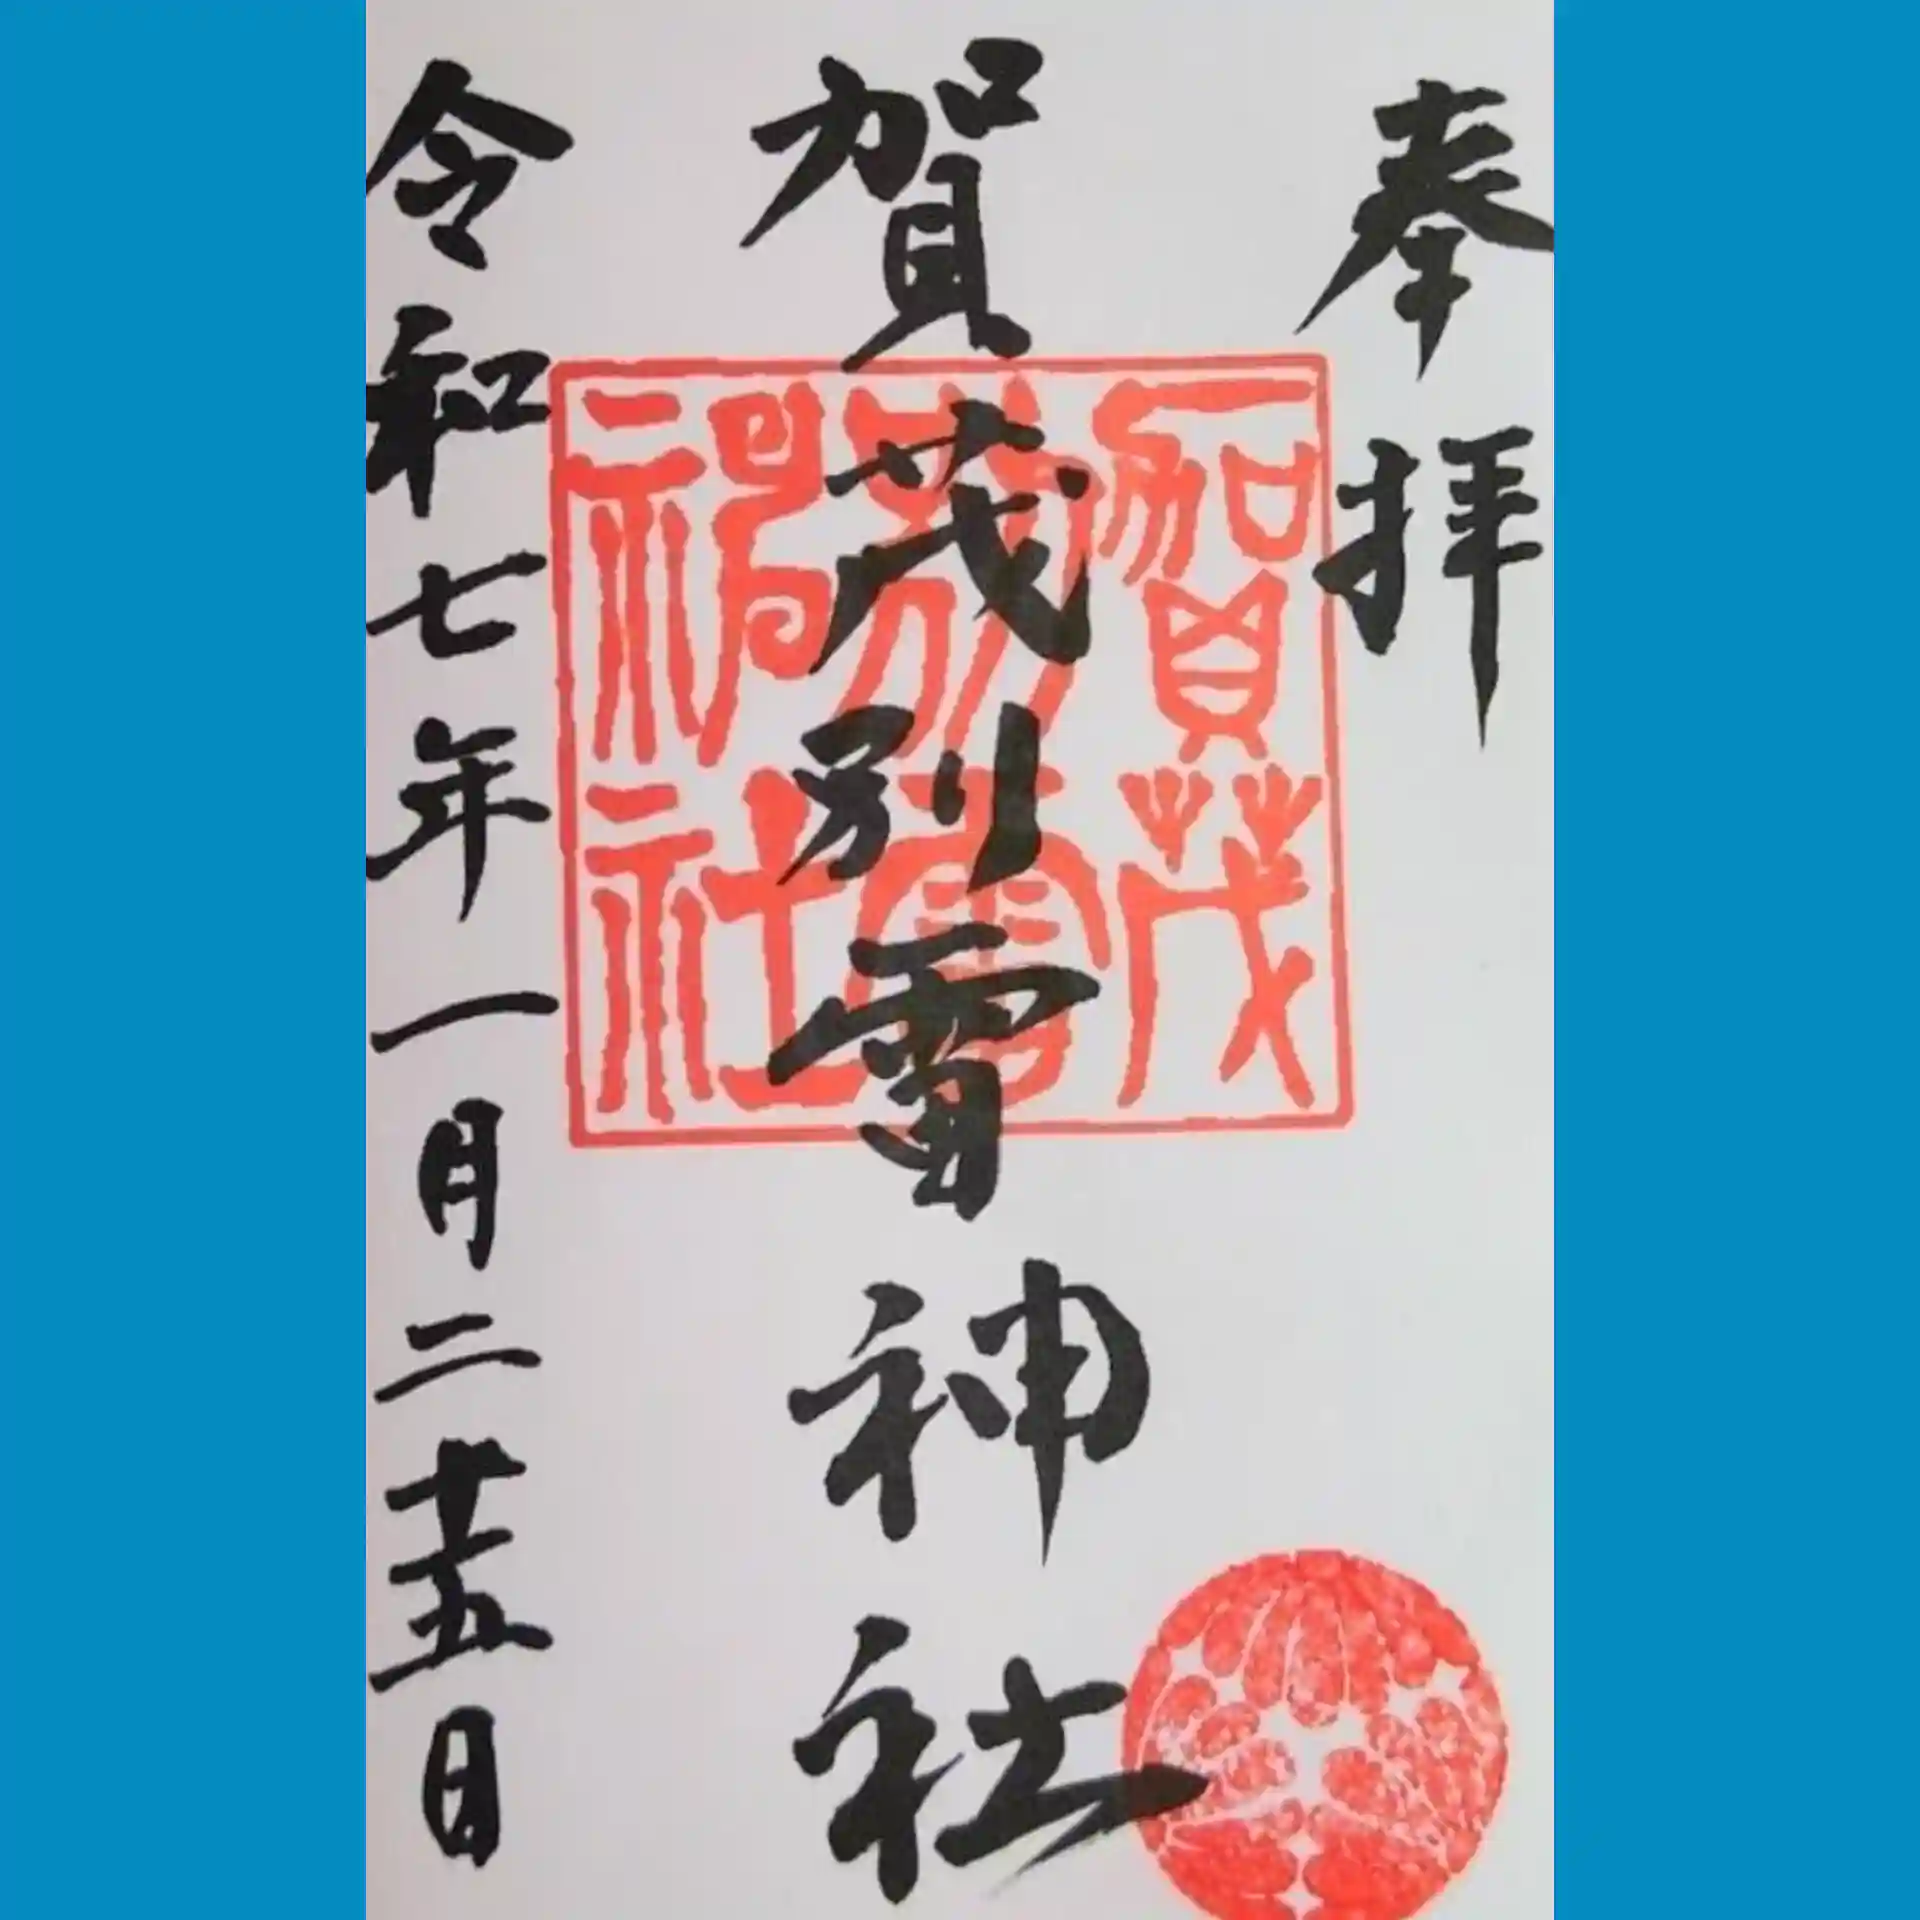 奉拝
賀茂別雷神社
賀茂別雷神社
令和七年一月二十五日